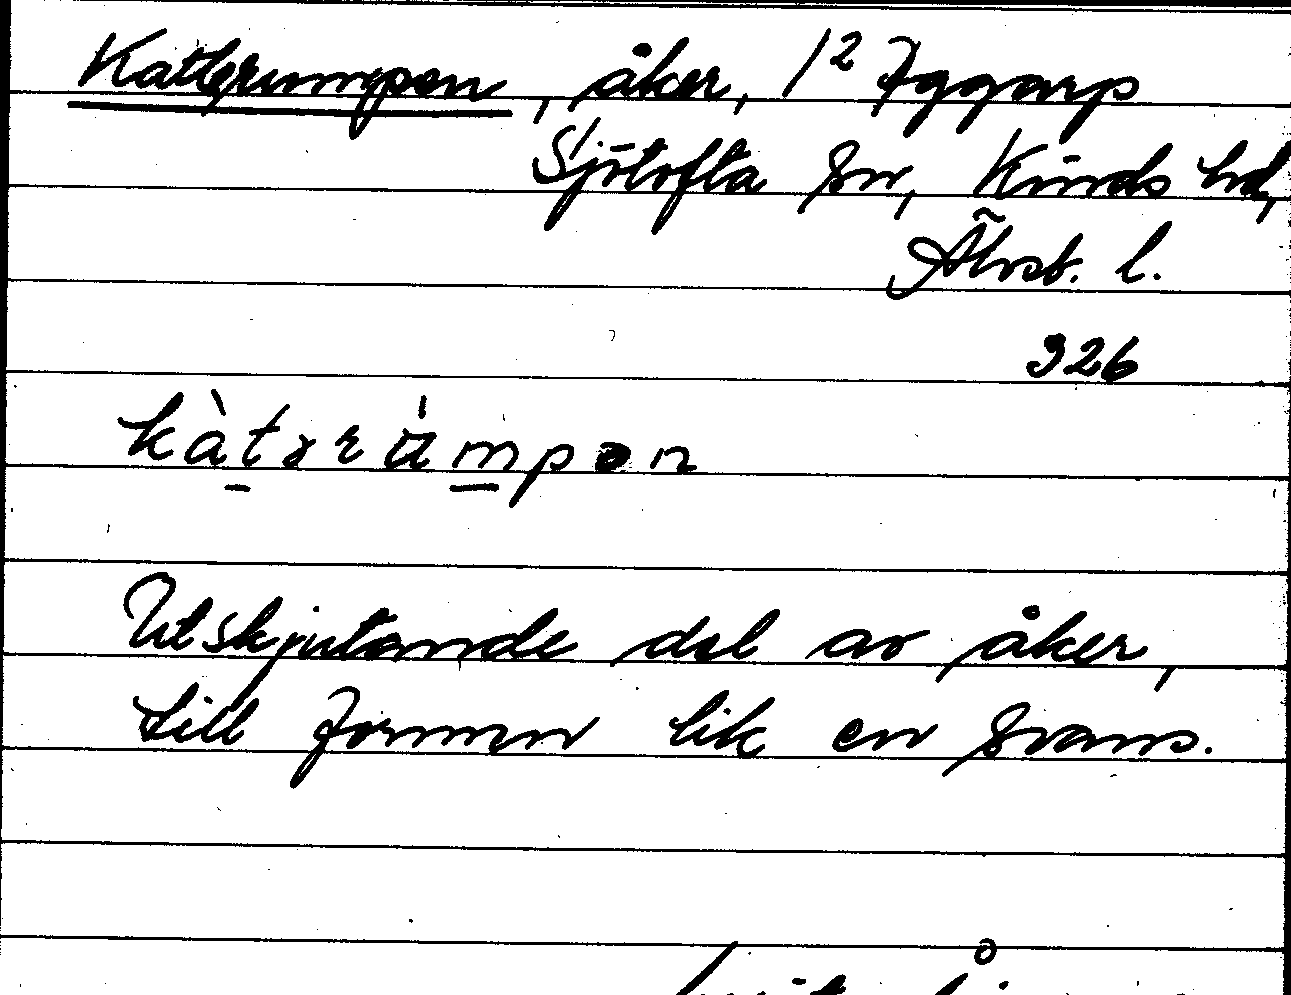 Katterumpen, åker, 1² Iggarp
Sjötofta sn, Kinds hd,
Älvsb. l.
326
kàtərùmpən
Utskjutande del av åker,
till formen lik en svans.